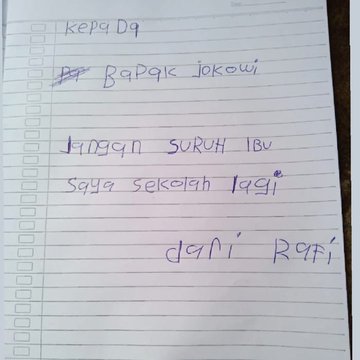 KepaDa
BaPak jokowi
Jangan SURUH IBU
saya sekolah lagi
dari RaFi